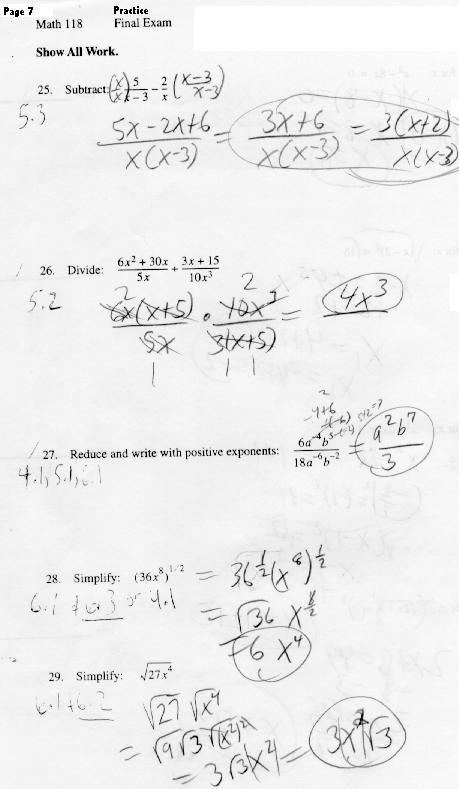 Page 7 Practice
Math 118 Final Exam
Show All Work.
25. Subtract: (x/x) 5/(x-3) - 2/x (x-3/x-3)
5.3
(5x-2x+6)/(x(x-3)) = (3x+6)/(x(x-3)) = 3(x+2)/(x(x-3))
26. Divide: (6x² + 30x)/(5x) ÷ (3x + 15)/(10x³)
5.2
2 2
6x(x+5)/5x · 10x³/3(x+5) = 4x³
1 1 1
27. Reduce and write with positive exponents: (6a⁻⁴b⁵)/(18a⁻⁶b⁻²) = a²b⁷/3
4.1, 5.1, 6.1
28. Simplify: (36x⁸)^1/2 = 36^½(x⁸)^½
6.1 + 6.3 or 4.1
= √36 x^8/2
= 6x⁴
29. Simplify: √27x⁴
6.1+6.2
√27 √x⁴
= √9 √3 √(x²)²
= 3√3|x²| = 3x²√3